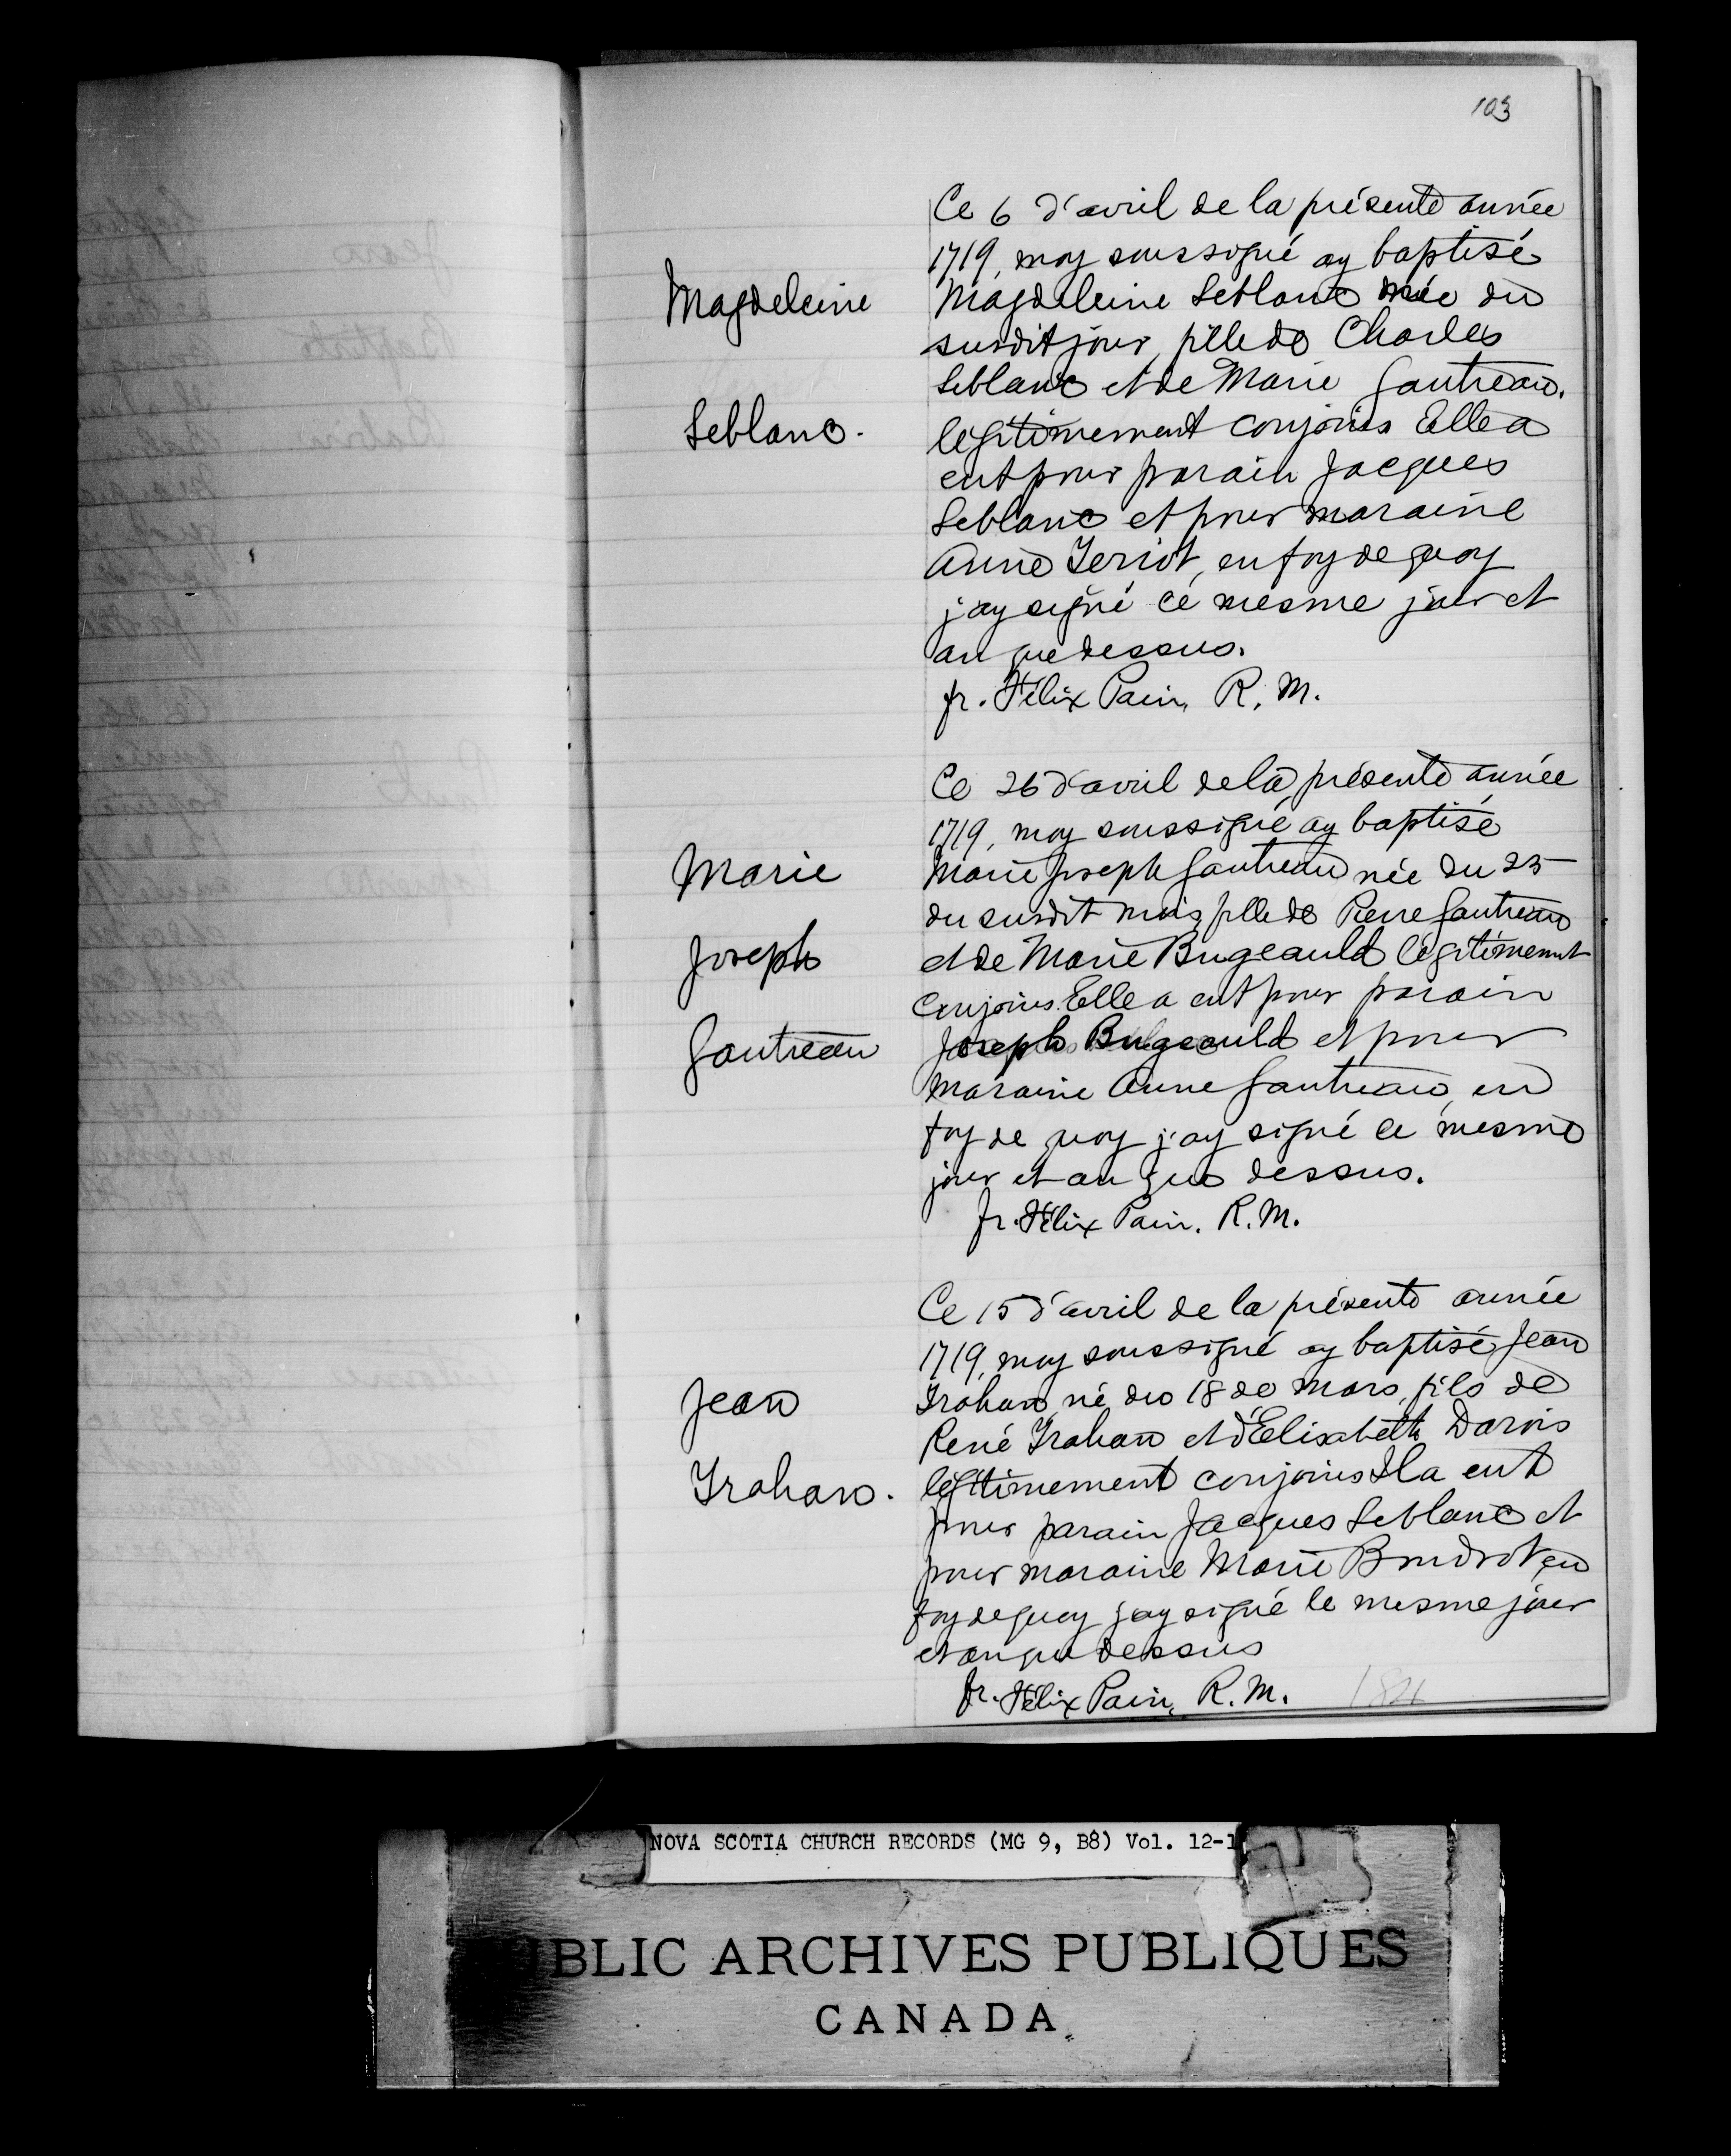 103
Ce 6 d'avril de la présente année
1719, moy soussigné ay baptisé
Magdeleine
Magdeleine Leblanc née du
susdit jour, fille de Charles
Leblanc et de Marie Gautreau.
Leblanc.
légitimement conjoins Elle a
eut pour parain Jacques
Leblanc et pour maraine
Anne Teriot, en foy de quoy
j'ay signé ce mesme jour et
an que dessus.
fr. Félix Pain, R. M.
Ce 26 d'avril de la présente année
1719, moy soussigné ay baptisé
Marie
Marie Joseph Gautreau née du 25
du susdit mois, fille de Pierre Gautreau
Joseph
et de Marie Bugeauld légitimement
conjoins. Elle a eut pour parain
Gautreau
Joseph Bugeauld et pour
maraine Anne Gautreau, en
foy de quoy j'ay signé ce mesme
jour et an que dessus.
fr. Félix Pain. R. M.
Ce 15 d'avril de la présente année
1719, moy soussigné ay baptisé Jean
Jean
Trahan, né du 18 de mars, fils de
René Trahan et d'Elisabeth Darois
Trahan.
légitimement conjoins Il a eut
pour parain Jacques Leblanc et
pour maraine Marie Boudrot, en
foy de quoy j'ay signé le mesme jour
et an que dessus
fr. Félix Pain, R. M.
NOVA SCOTIA CHURCH RECORDS (MG 9, B8) Vol. 12-1
UBLIC ARCHIVES PUBLIQUES
CANADA